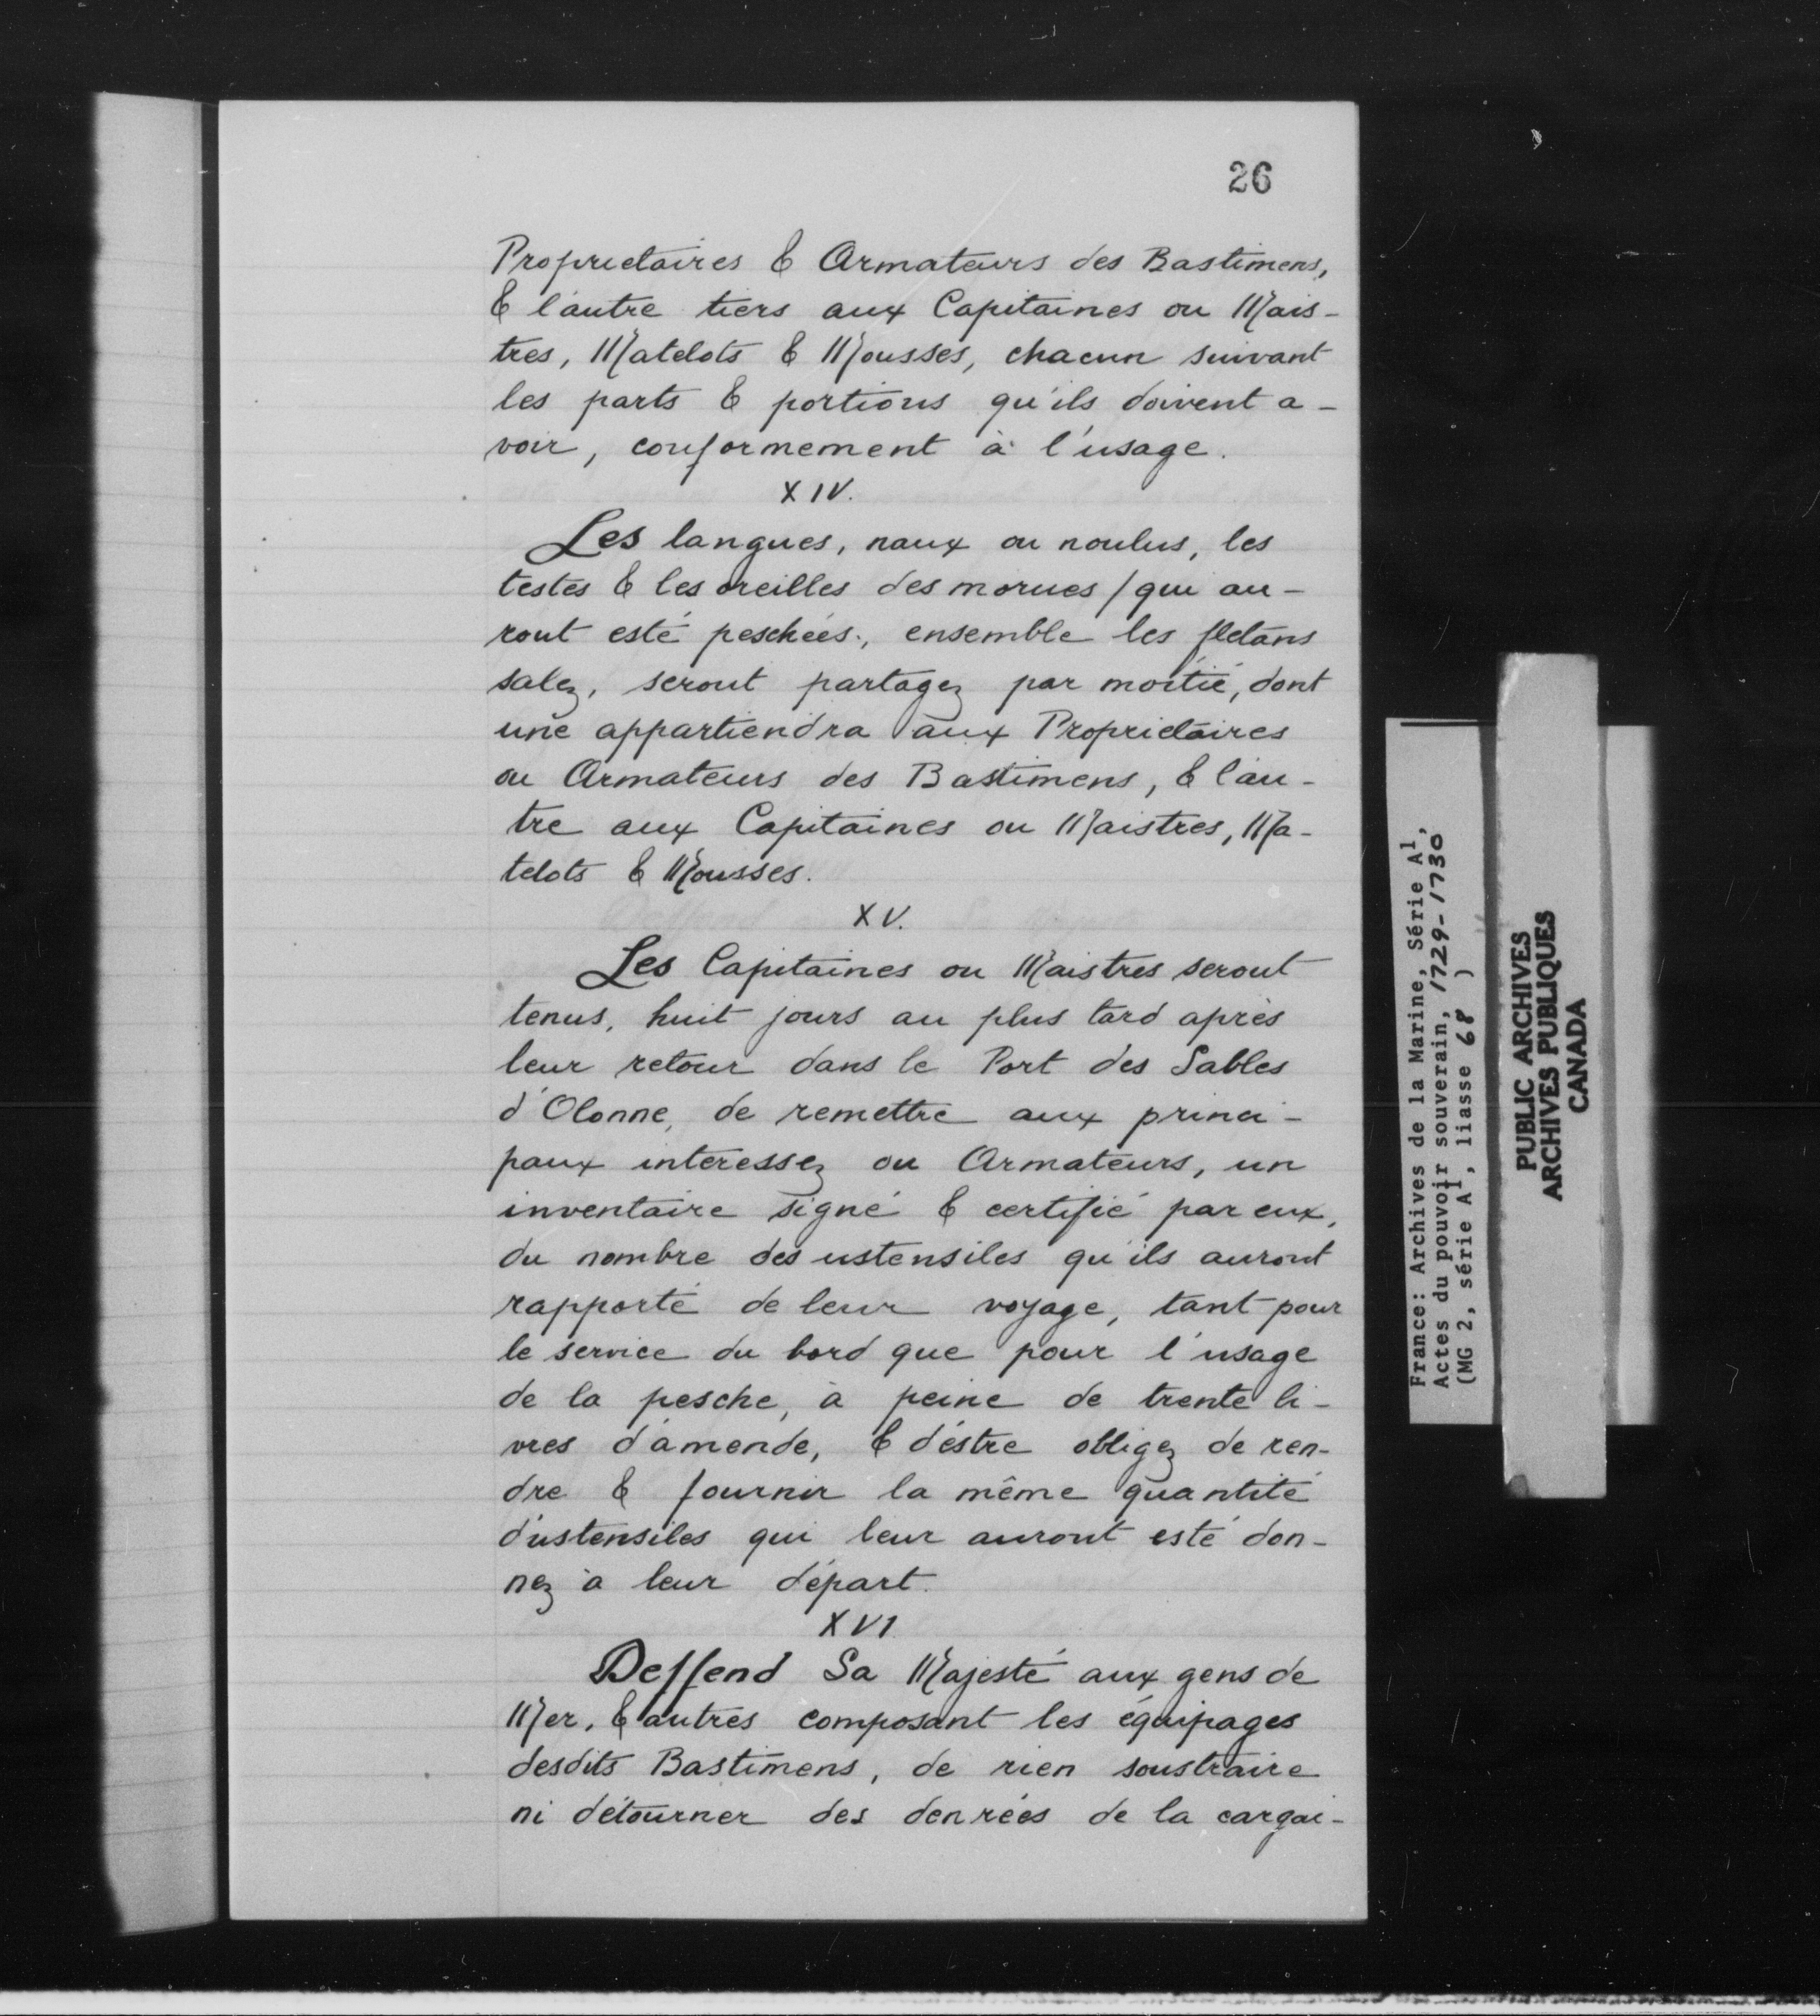 26
Proprietaires & Armateurs des Bastimens,
& l'autre tiers aux Capitaines ou Mais-
tres, Matelots & Mousses, chacun suivant
les parts & portions qu'ils doivent a-
voir, conformement à l'usage.
XIV.
Les langues, naux ou noulus, les
testes & les oreilles des morues / qui au-
ront esté peschées, ensemble les fletans
salez, seront partagez par moitié, dont
une appartiendra aux Proprietaires
ou Armateurs des Bastimens, & l'au-
tre aux Capitaines ou Maistres, Ma-
telots & Mousses.
XV.
Les Capitaines ou Maistres seront
tenus, huit jours au plus tard après
leur retour dans le Port des Sables
d'Olonne, de remettre aux princi-
paux interessez ou Armateurs, un
inventaire signé & certifié par eux,
du nombre des ustensiles qu'ils auront
rapporté de leur voyage, tant pour
le service du bord que pour l'usage
de la pesche, à peine de trente li-
vres d'amende, & d'éstre obligez de ren-
dre & fournir la même quantité
d'ustensiles qui leur auront esté don-
nez à leur départ.
XVI
Deffend Sa Majesté aux gens de
Mer, & autres composant les équipages
desdits Bastimens, de rien soustraire
ni détourner des denrées de la cargai-
France: Archives de la Marine, Série A1,
Actes du pouvoir souverain, 1729-1730
(MG 2, série A1, liasse 68 )
PUBLIC ARCHIVES
ARCHIVES PUBLIQUES
CANADA